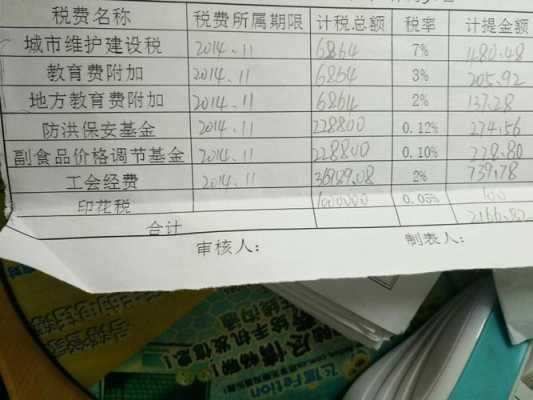 税费名称 税费所属期限 计税总额 税率 计提金额
城市维护建设税 2014.11 6864 7% 480.48
教育费附加 2014.11 6864 3% 205.92
地方教育费附加 2014.11 6864 2% 137.28
防洪保安基金 2014.11 228800 0.12% 274.56
副食品价格调节基金 2014.11 228800 0.10% 228.80
工会经费 2014.11 36989.08 2% 739.78
印花税 0.05% 100
合计 2166.82
审核人: 制表人:
给手机发信息!
Fetion